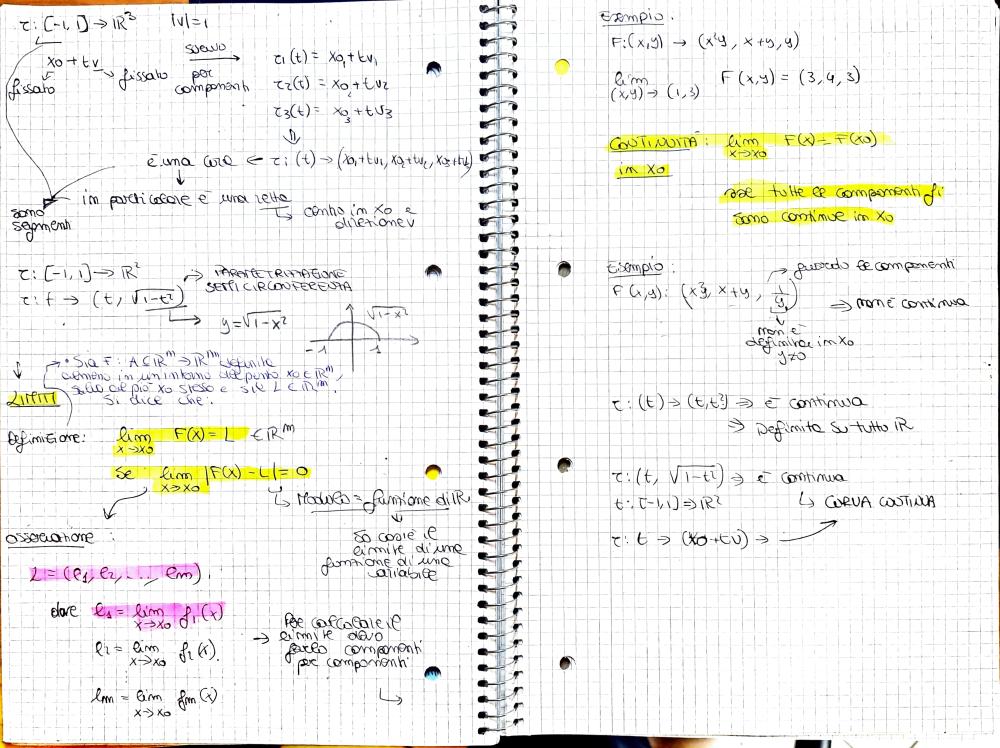 τ: [-1, 1] → ℝ³   |v|=1
x0 + tv
fissato
fissato
per
componenti
τ1(t) = x01 + tv1
τ2(t) = x02 + tv2
τ3(t) = x03 + tv3
⇓
è una ← τi(t) → (x01+tv1, x02+tv2, x03+tv3)
in particolare è una retta
centro in x0 e
direzione v
sono
segmenti
τ: [-1, 1] → ℝ²
PARAMETRIZZAZIONE
SEMICIRCONFERENZA
τ: t → (t, √1-t²)
y = √1-x²
√1-x²
-1   1
• Sia F: A ⊆ ℝⁿ → ℝᵐ definita
almeno in un intorno del punto x0 ∈ ℝⁿ,
salvo al più x0 stesso e sia L ∈ ℝᵐ.
Si dice che:
LIMITI
Definizione: lim x→x0 F(x) = L ∈ ℝᵐ
Se lim x→x0 |F(x) - L| = 0
↳ Modulo = funzione di ℝ
So cos'è il
limite di una
funzione di una
variabile
osservazione :
L = (l1, l2, ..., lm).
dove l1 = lim x→x0 f1(x)
l2 = lim x→x0 f2(x).
lm = lim x→x0 fm(x)
Per calcolare il
→ limite devo
farlo componenti
per componenti
Esempio.
F: (x,y) → (x²y, x+y, y)
lim (x,y)→(1,3) F(x,y) = (3, 4, 3)
CONTINUITÀ: lim x→x0 F(x) = F(x0)
in x0
sse tutte le componenti fi
sono continue in x0
Esempio:
guardo le componenti
F(x,y): (x²y, x+y, 1/y) → non è continua
non è
definita in x0
y≠0
τ: (t) → (t, t²) ⇒ è continua
⇒ Definita su tutto ℝ
τ: (t, √1-t²) ⇒ è continua
t: [-1,1] ⇒ ℝ²   ↳ CURVA CONTINUA
τ: t → (x0+tv) →